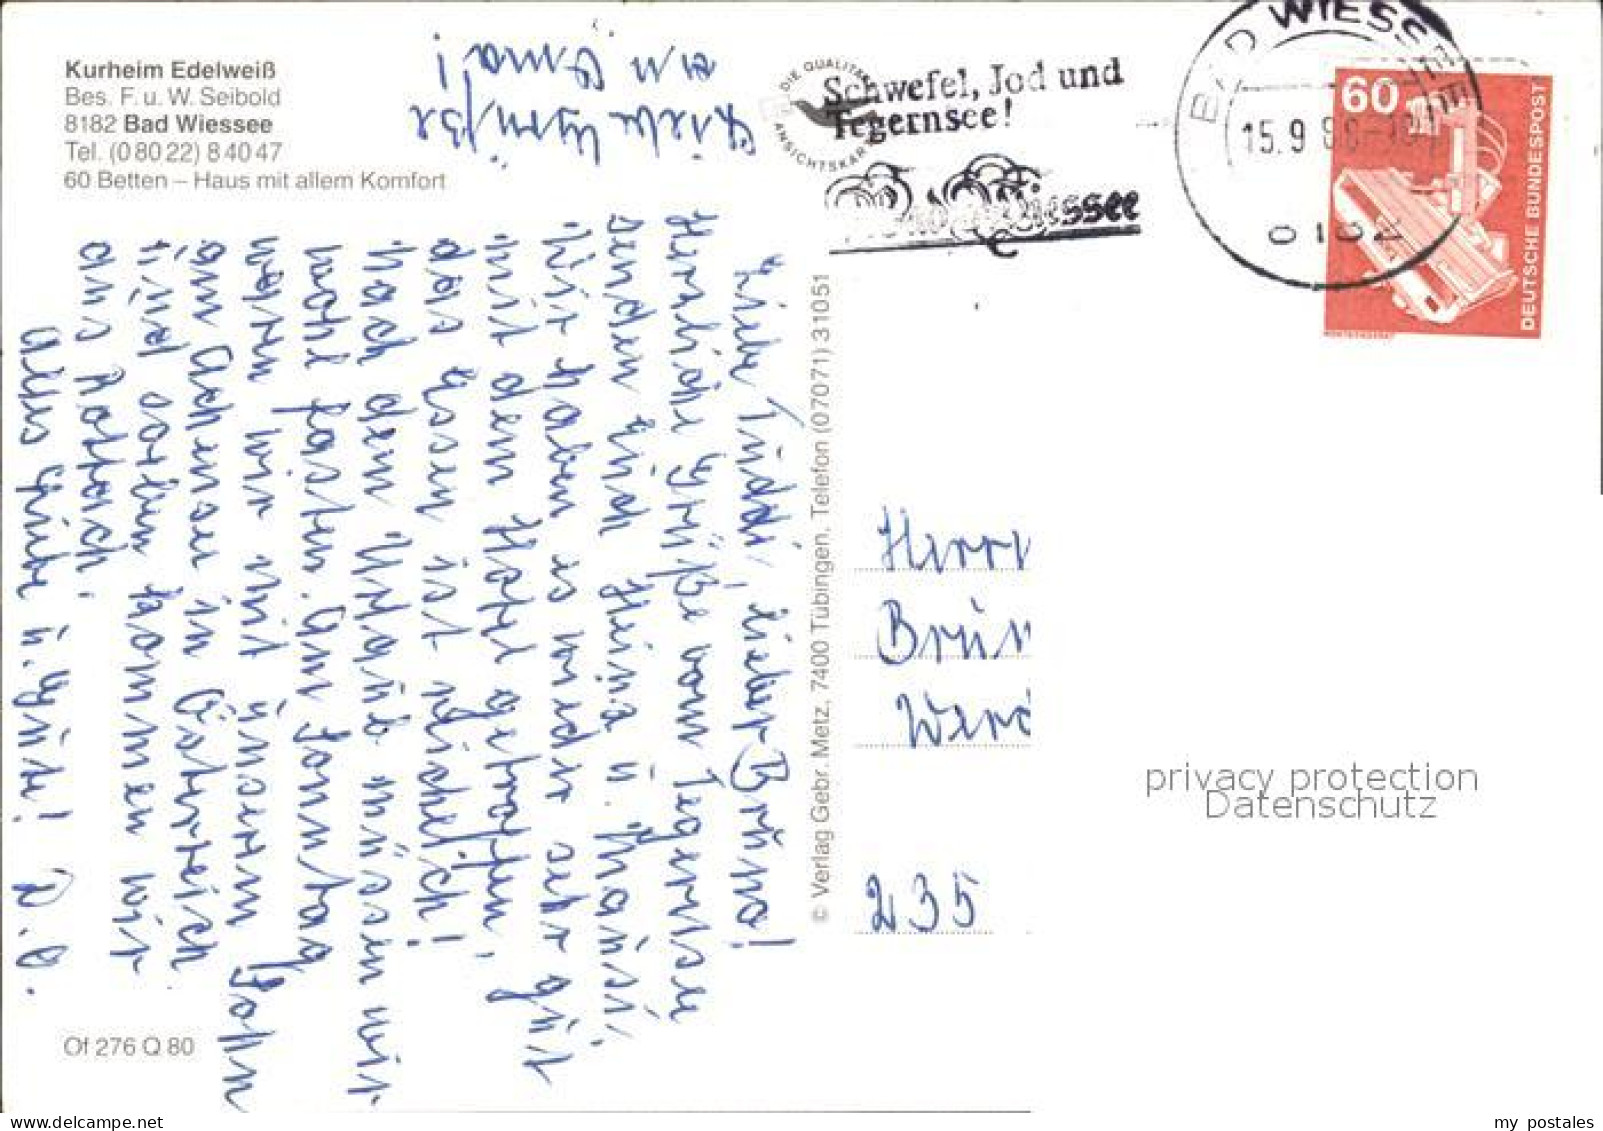 Kurheim Edelweiß
Bes. F. u. W. Seibold
8182 Bad Wiessee
Tel. (0 80 22) 8 40 47
60 Betten – Haus mit allem Komfort
Liebe Grüße
an Oma!
DIE QUALITÄTS
ANSICHTSKARTE
Schwefel, Jod und
Tegernsee!
Wiessee
BAD WIESSEE
15.9.8
8182
60
DEUTSCHE BUNDESPOST
Liebe Tüddi, lieber Brüno!
Herzliche Grüße vom Tegernsee
senden Euch Heinz ü. Maüsi.
Wir haben es wieder sehr güt
mit dem Hotel getroffen,
das Essen ist reichlich!
Nach dem Urlaüb müssen wir
wohl fasten. Am Sonntag
waren wir mit ünserm Sohn
am Achensee in Österreich
ünd soeben kommen wir
aus Rottach.
Alles Liebe ü. Güte! D. O.
© Verlag Gebr. Metz, 7400 Tübingen, Telefon (07071) 31051
Herrn
Brün
Werd
235
privacy protection
Datenschutz
Of 276 Q 80
www.delcampe.net
my_postales